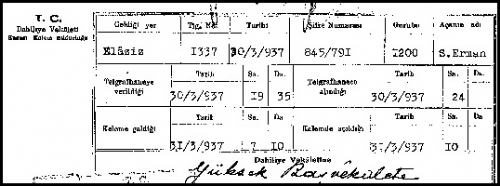 T. C.
Dahiliye Vekâleti
Geldiği yer Tarihi Şifre Numarası Gurubu Açanın adı
Elâziz 1337 30/3/937 845/791 1200 S.Erman
Telgrafhaneye verildiği Tarih Sa. Da. Telgrafhanece alındığı Tarih Sa. Da.
30/3/937 19 35 30/3/937 24
Kaleme geldiği Tarih Sa. Da. Kalemde açıldığı Tarih Sa. Da.
31/3/937 7 10 31/3/937 10
Dahiliye Vekâletine
Yüksek Başvekâlete